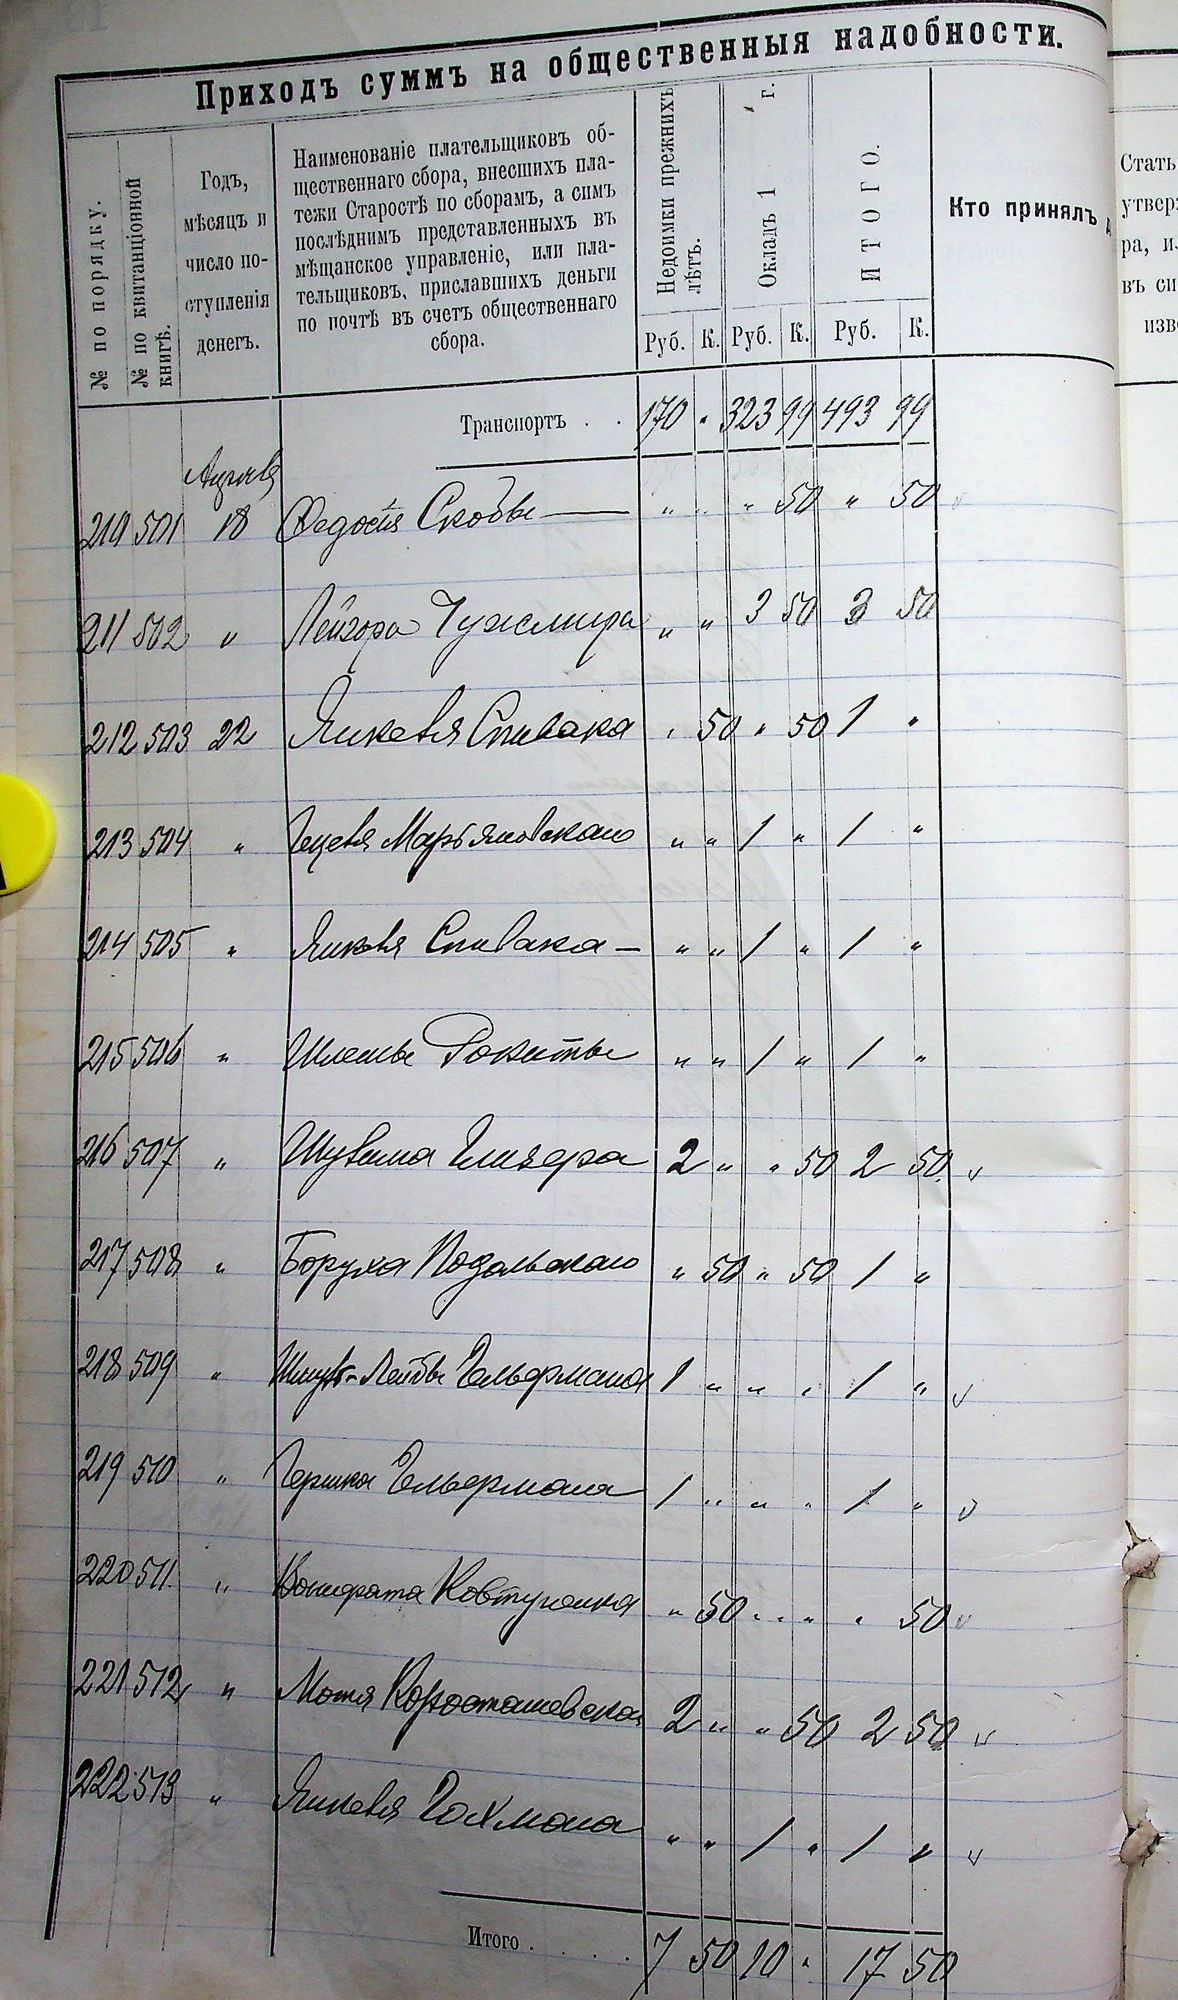 Приходъ суммъ на общественныя надобности.
№ по порядку.
№ по квитанціонной
книгѣ.
Годъ,
мѣсяцъ и
число по-
ступленія
денегъ.
Наименованіе плательщиковъ об-
щественнаго сбора, внесшихъ пла-
тежи Старостѣ по сборамъ, а симъ
послѣднимъ представленныхъ въ
мѣщанское управленіе, или пла-
тельщиковъ, приславшихъ деньги
по почтѣ въ счетъ общественнаго
сбора.
Недоимки прежнихъ
лѣтъ.
Окладъ 1 г.
ИТОГО.
Руб. К. Руб. К. Руб. К.
Кто принялъ
Стать
утвер
ра, и
въ си
изв
Транспортъ . . 170 " 323 99 493 99
210 501 18 Федосія Скобы — " " " 50 " 50
211 502 " Лейзора Тужмира " " 3 50 3 50
212 503 22 Янкеля Спивака " 50 " 50 1 "
213 504 " Гецеля Марьяновскаго " " 1 " 1 "
214 505 " Янкеля Спивака — " " 1 " 1 "
215 506 " Шлемы Рокиты " " 1 " 1 "
216 507 " Глизера 2 " " 50 2 50
217 508 " Боруха Подольскаго " 50 " 50 1 "
218 509 " Лейбы Гельфмана 1 " " " 1 "
219 510 " Гершка Гельфмана 1 " " " 1 "
220 511 " Ковтуненка " 50 " " " 50
221 512 " Мотя Коростошевская 2 " " 50 2 50
222 513 " Янкеля Гохмана " " 1 " 1 "
Итого . . . . 7 50 10 " 17 50